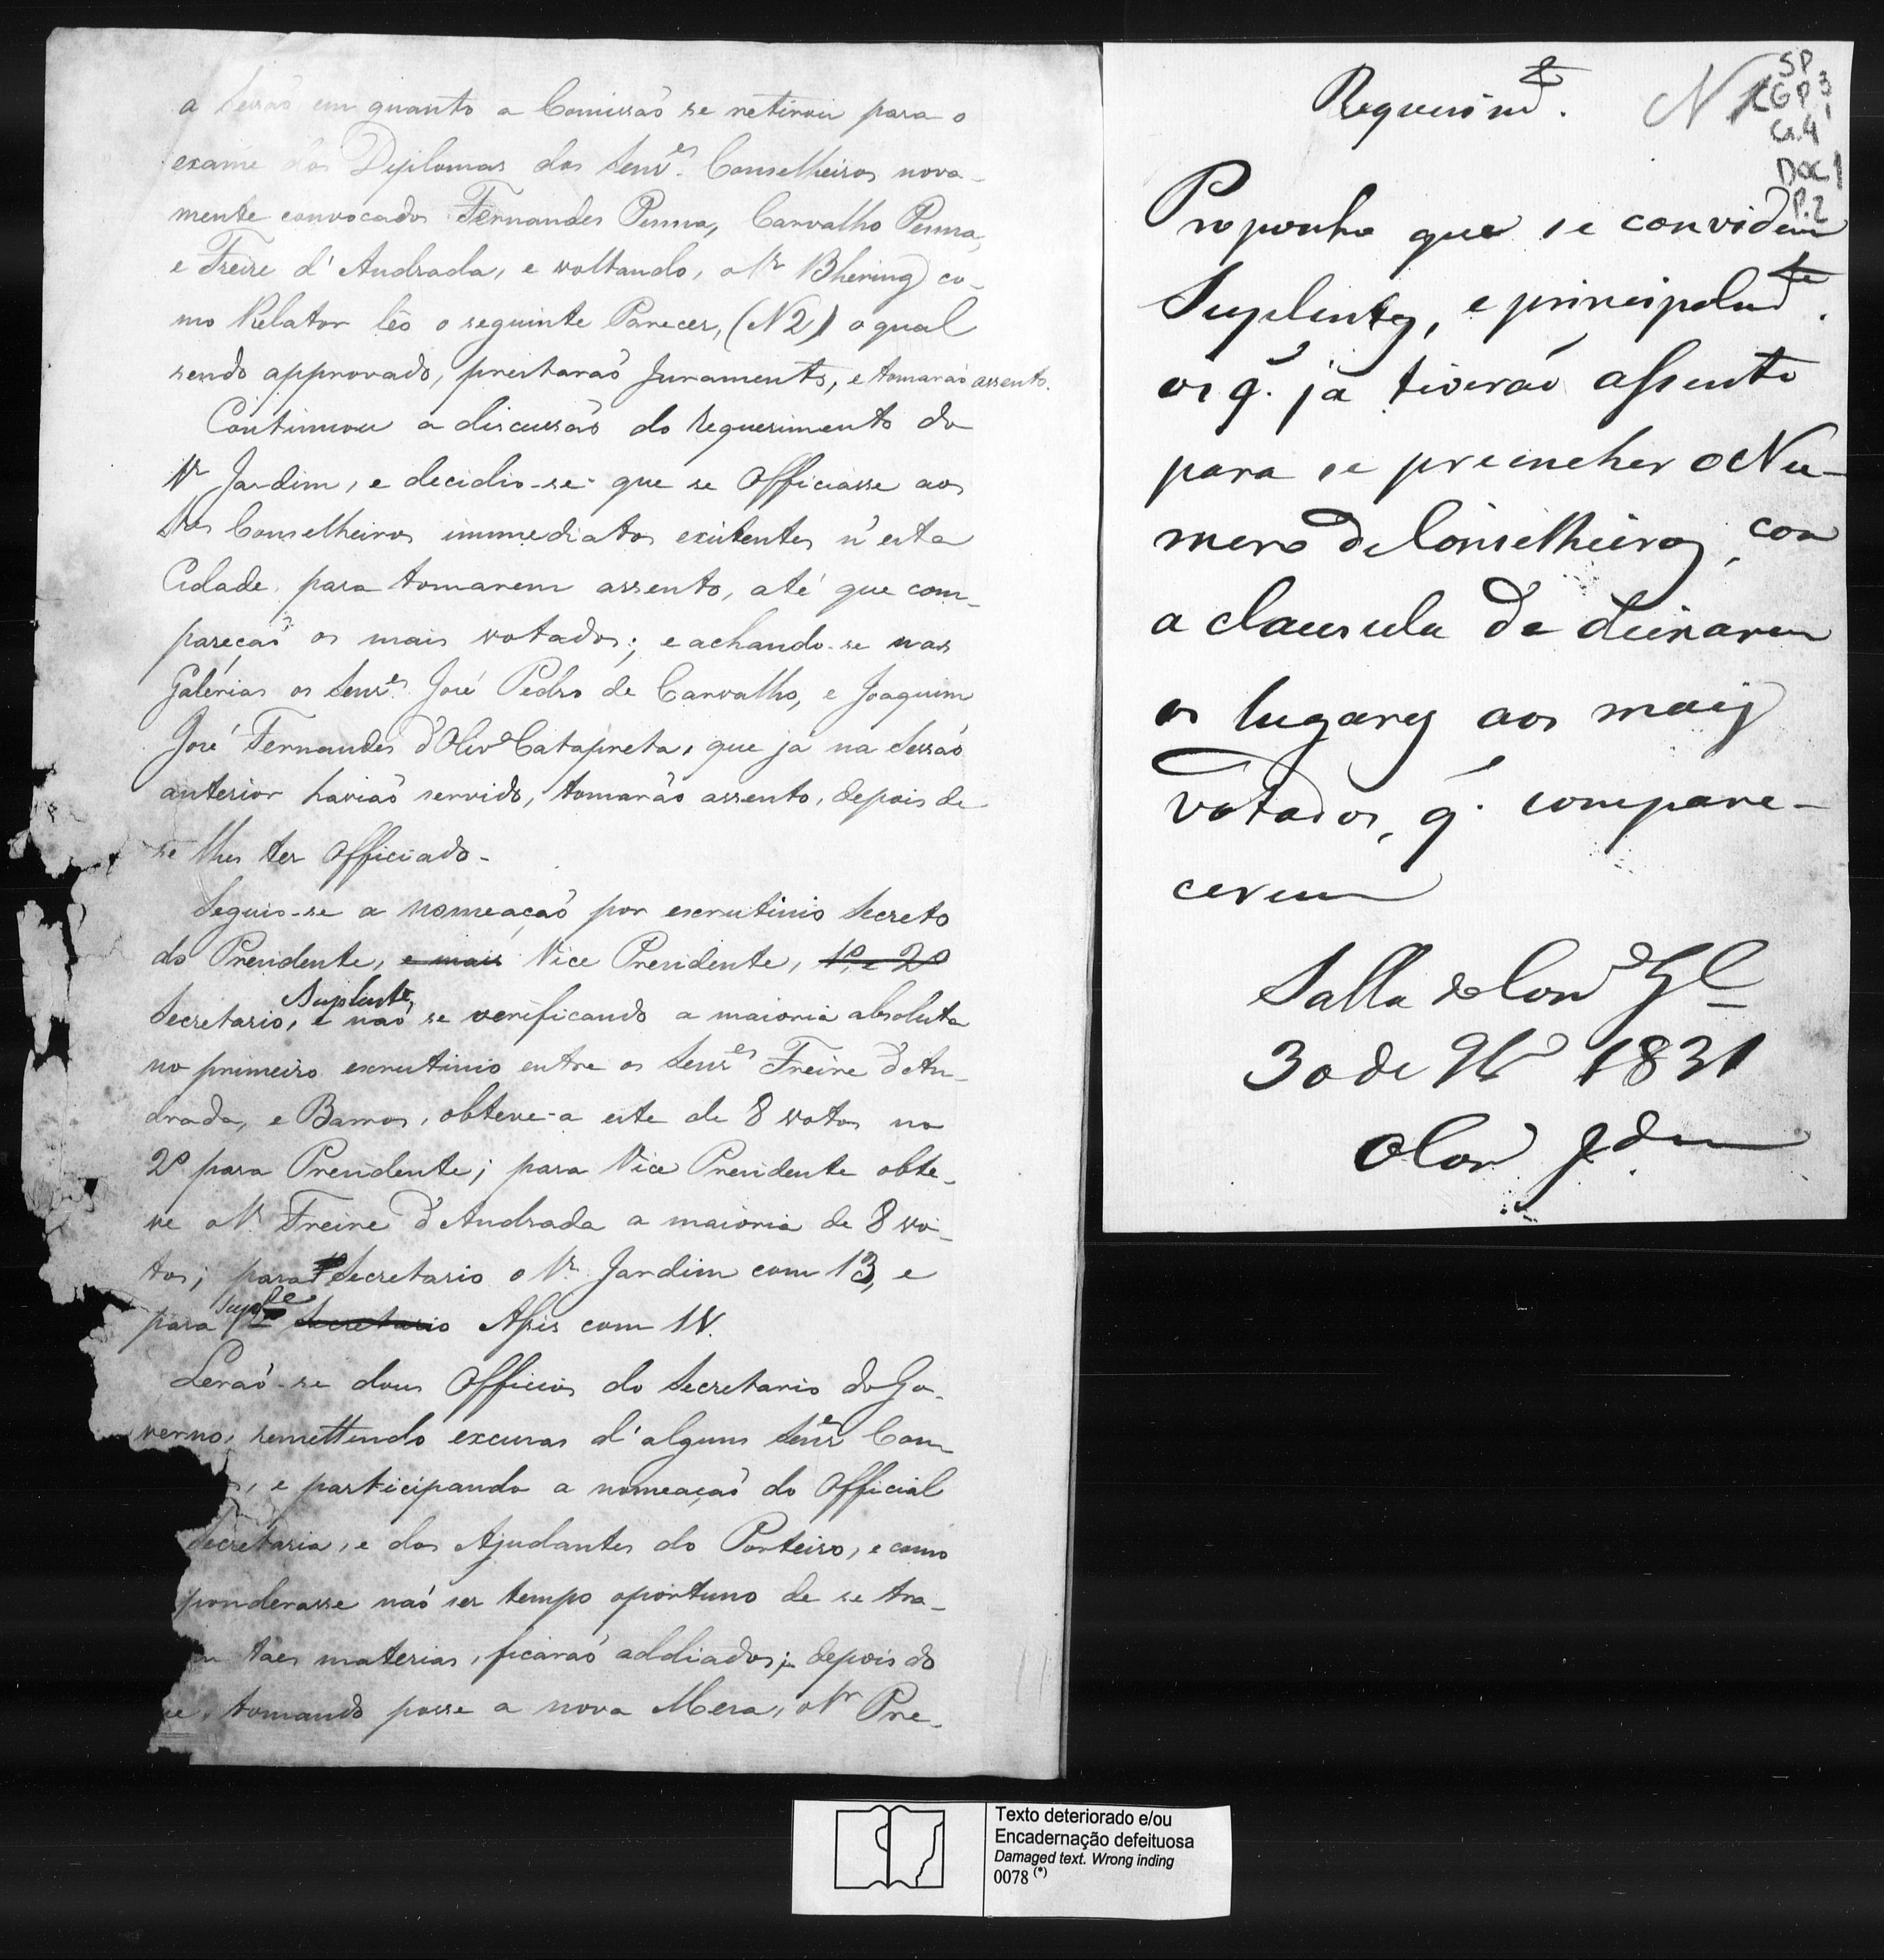 a Sessaõ em quanto a Comissaõ se retirou para o
exame dos Diplomas dos Senr.es Conselheiros nova-
mente convocados Fernandes Penna, Carvalho Penna,
e Freire d'Andrada, e voltando, o Sr. Bhering co-
mo Relator lêo o seguinte Parecer, (N2) o qual
sendo approvado, prestaraõ Juramento, e tomaraõ assento.
Continuou a discussaõ do Requerimento do
Sr. Jardim, e decidio-se que se Officiasse aos
Srs Conselheiros immediatos existentes n'esta
Cidade para tomarem assento, até que com-
pareçaõ os mais votados; e achando-se nas
Galérias os Senr.es José Pedro de Carvalho, e Joaquim
José Fernandes d'Oliv.a Catapreta, que ja na Sessaõ
anterior haviaõ servido, tomaraõ assento, depois de
se lhes ter Officiado-
Seguio-se a nomeaçaõ por escrutinio Secreto
do Presidente, e mais Vice Presidente, 1º, e 2º
Suplente
Secretario, e naõ se verificando a maioria absoluta
no primeiro escrutinio entre os Senr.es Freire d'An-
drada, e Barros, obteve-a este de 8 votos no
2º para Presidente; para Vice Presidente obte-
ve o Sr. Freire d'Andrada a maioria de 8 vo-
tos; para Secretario o Sr. Jardim com 13, e
para Sup.te Secretario Assis com
Leraõ-se dous Officios do Secretario do Go-
verno, remettendo excusas d'alguns Senr.es Con-
, e participando a nomeaçaõ do Official
Secretaria, e dos Ajudantes do Porteiro, e como
ponderasse naõ ser tempo oportuno de se tra-
taes materias, ficaraõ addiados; depois do
que, tomando posse a nova Mesa, o Sr. Pre-
Requerim.to
N1
SP
CGP 3
Cx.4
DOC 1
P.2
Proponho que se convidem
Suplentes, e principalm.te
os q. já tiveraõ assento
para se preencher o Nu-
mero de Conselheiros, com
a clausula de deixarem
os lugares aos mais
votados, q. compare-
cerem
Salla do Con.o G.l
30 de 9b.o 1831
O Con.o Jd.m
Texto deteriorado e/ou
Encadernação defeituosa
Damaged text. Wrong inding
0078 (*)